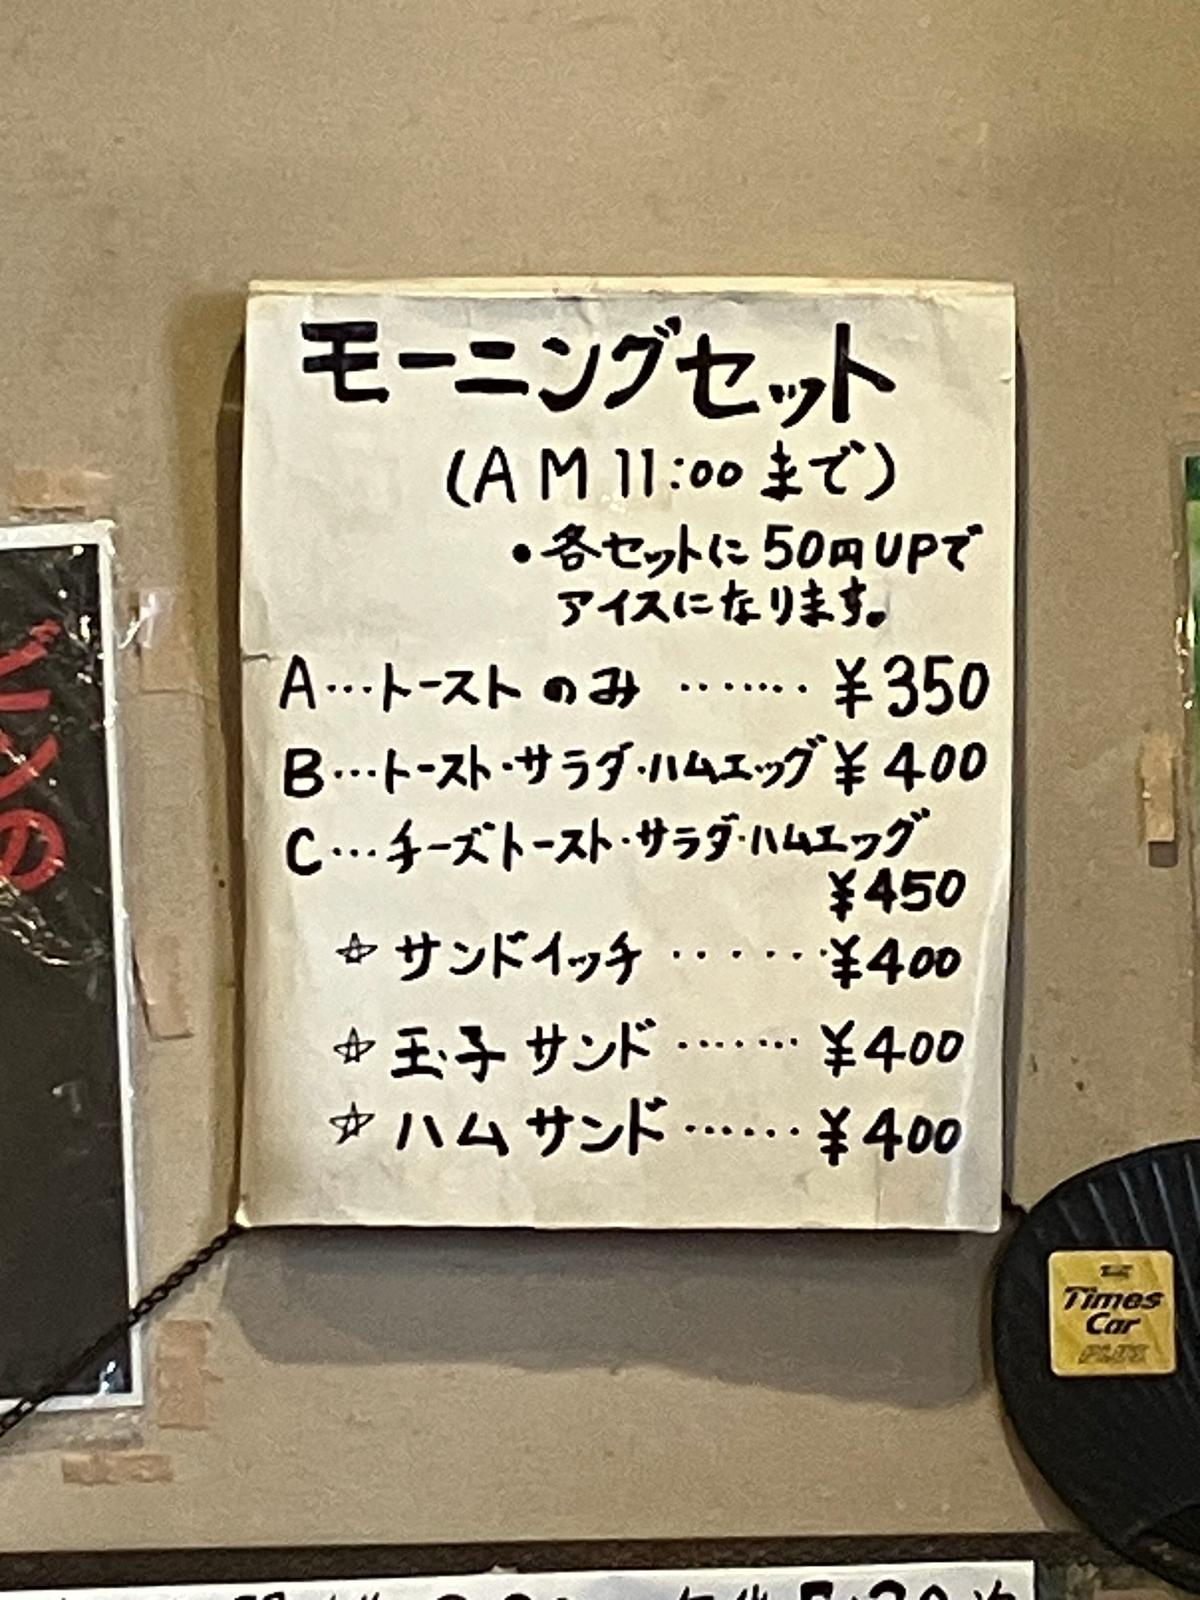 モーニングセット
(AM 11:00 まで)
•各セットに 50円UPで
アイスになります。
A…トーストのみ ……. ¥350
B…トースト・サラダ・ハムエッグ ¥400
C…チーズトースト・サラダ・ハムエッグ
¥450
☆ サンドイッチ ……. ¥400
☆ 玉子サンド ……. ¥400
☆ ハムサンド …… ¥400
Times
Car
PLUS